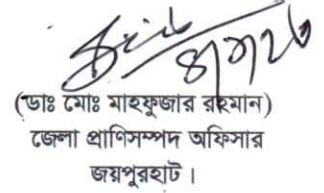 (ডাঃ মোঃ মাহফুজার রহমান)
জেলা প্রাণিসম্পদ অফিসার
জয়পুরহাট।